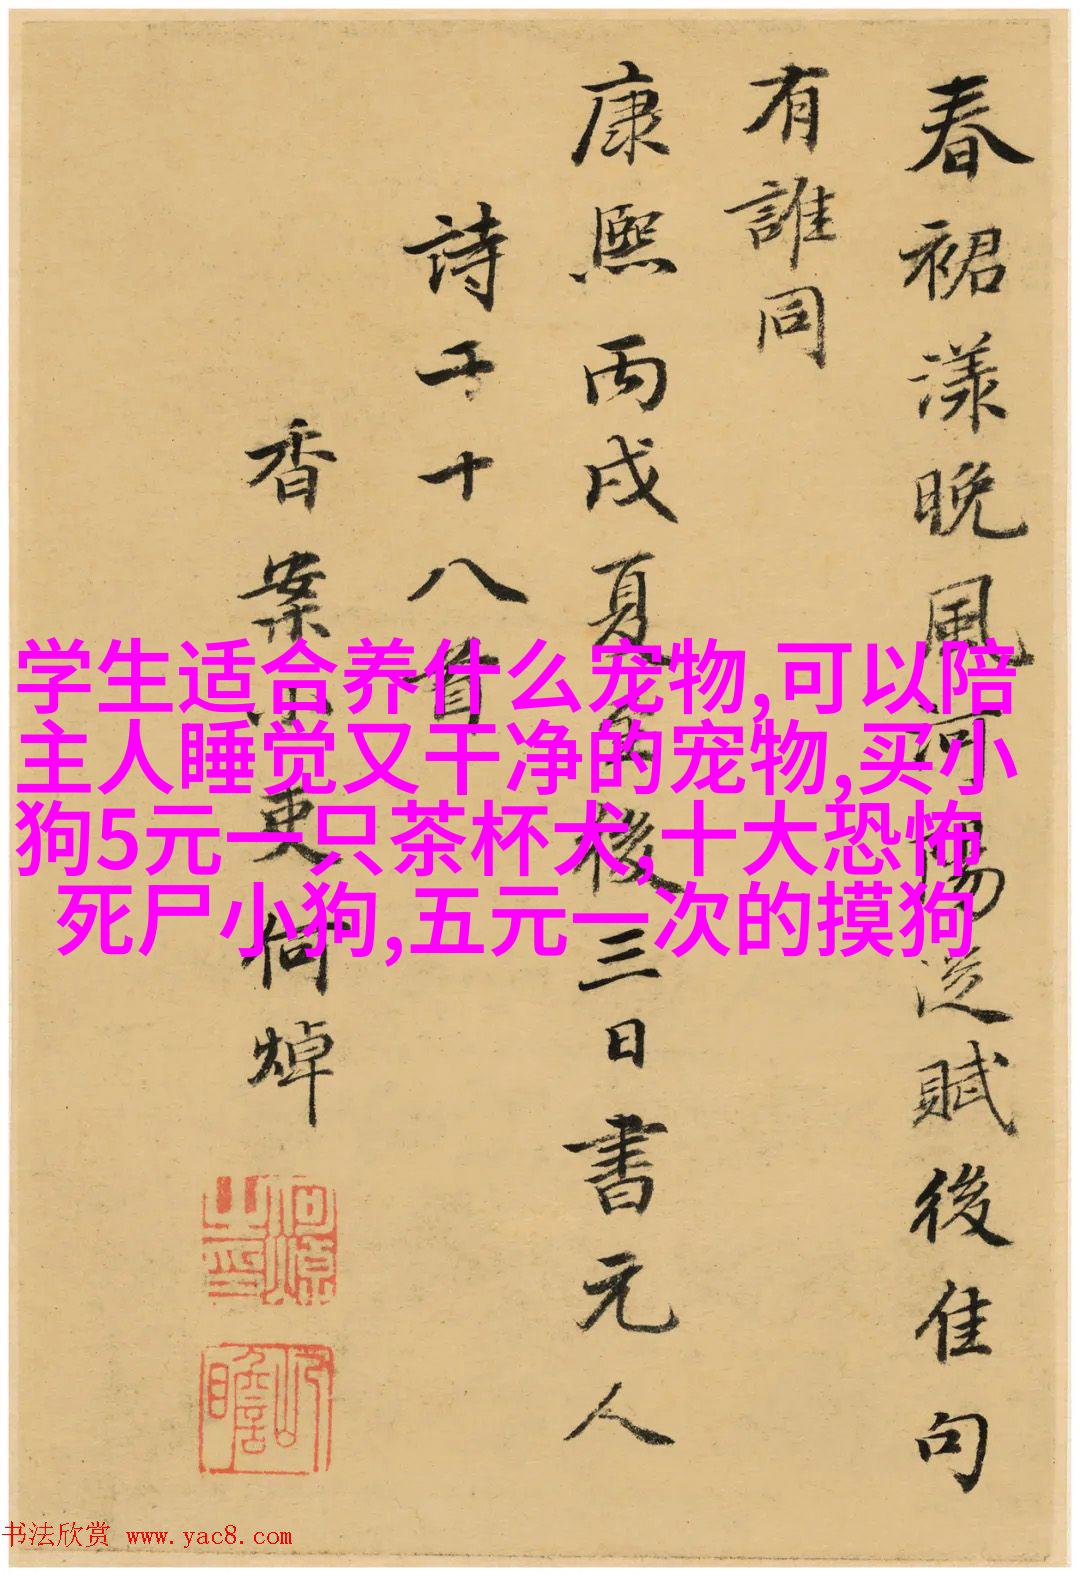 春裙漾晚風河陽從賦後佳句
有誰同
康熙丙戌夏至後三日書元人
詩于十八首
香案小吏何焯
何焯之印
屺瞻
学生适合养什么宠物,可以陪
主人睡觉又干净的宠物,买小
狗5元一只茶杯犬,十大恐怖
死尸小狗,五元一次的摸狗
书法欣赏 www.yac8.com